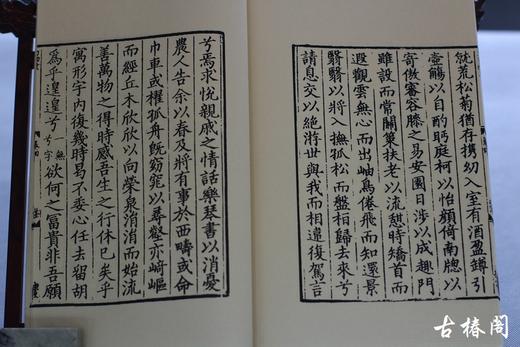 就荒松菊猶存携幼入室有酒盈罇引
壺觴以自酌眄庭柯以怡顔倚南牕以
寄傲審容膝之易安園日涉以成趣門
雖設而常關策扶老以流憩時矯首而
遐觀雲無心而出岫鳥倦飛而知還景
翳翳以將入撫孤松而盤桓歸去來兮
請息交以絶游世與我而相違復駕言
兮焉求悅親戚之情話樂琴書以消憂
農人告余以春及將有事於西疇或命
巾車或櫂孤舟既窈窕以尋壑亦崎嶇
而經丘木欣欣以向榮泉涓涓而始流
善萬物之得時感吾生之行休已矣乎
寓形宇内復幾時曷不委心任去留胡
爲乎遑遑兮無兮字欲何之富貴非吾願
古椿阁